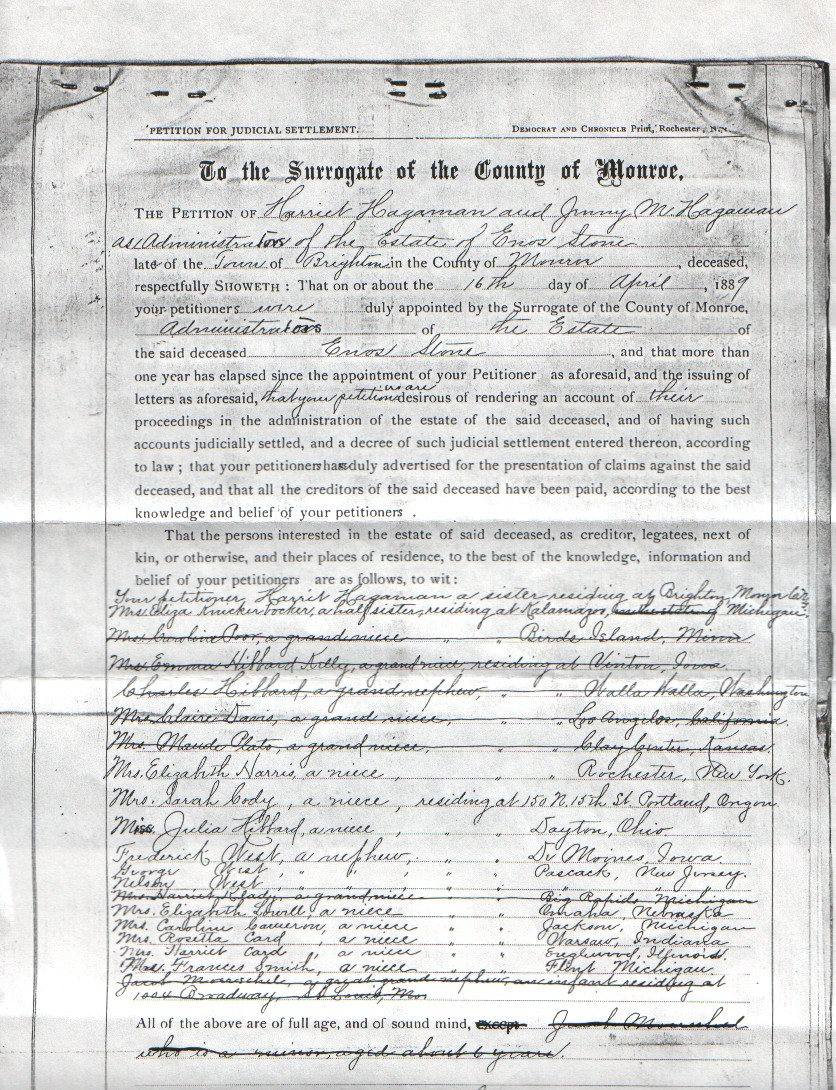 PETITION FOR JUDICIAL SETTLEMENT. DEMOCRAT AND CHRONICLE Print, Rochester, N.Y.
To the Surrogate of the County of Monroe.
THE PETITION OF Harriet Hagaman and Jenny M. Hagaman
as Administrators of the Estate of Enos Stone
late of the Town of Brighton in the County of Monroe, deceased,
respectfully SHOWETH: That on or about the 16th day of April, 1889
your petitioners were duly appointed by the Surrogate of the County of Monroe,
Administrators of the Estate of
the said deceased Enos Stone, and that more than
one year has elapsed since the appointment of your Petitioner as aforesaid, and the issuing of
letters as aforesaid, that your petitioners are desirous of rendering an account of their
proceedings in the administration of the estate of the said deceased, and of having such
accounts judicially settled, and a decree of such judicial settlement entered thereon, according
to law; that your petitioners has duly advertised for the presentation of claims against the said
deceased, and that all the creditors of the said deceased have been paid, according to the best
knowledge and belief of your petitioners .
That the persons interested in the estate of said deceased, as creditor, legatees, next of
kin, or otherwise, and their places of residence, to the best of the knowledge, information and
belief of your petitioners are as follows, to wit:
Your petitioner, Harriet Hagaman a sister residing at Brighton, Monroe Co.
Mrs. Eliza Knickerbocker, a half sister, residing at Kalamazoo, Michigan.
Mrs Caroline Poor, a grand niece " " Birds Island, Minn
Mrs Emma Hibbard Kelly, a grand niece, residing at Vinton, Iowa.
Charles Hibbard, a grand nephew, " " Walla Walla, Washington
Mrs. Claire Davis, a grand niece, " " Los Angelos, California.
Mrs. Maude Plato, a grand niece, " " Clay Center, Kansas.
Mrs. Elizabeth Harris, a niece, " " Rochester, New York.
Mrs. Sarah Cody, a niece, residing at 150 N. 15th St. Portland, Oregon
Miss. Julia Hibbard, a niece, " " Dayton, Ohio
Frederick West, a nephew, " " De Moines, Iowa
George West, " " " " Pascack, New Jersey.
Nelson West, " " " "
Mrs Harriet K. Eady, a grand niece " " Big Rapids Michigan
Mrs. Elizabeth Lowell, a niece " " Omaha, Nebraska
Mrs. Caroline Cameron, a niece " " Jackson, Michigan
Mrs. Rosetta Card, a niece " " Warsaw, Indiana
Mrs. Harriet Card, a niece " " Englewood, Illinois.
Mrs. Frances Smith, a niece " " Flint Michigan.
Jacob, a great grand nephew, an infant residing at
1004 Broadway, St Louis, Mo
All of the above are of full age, and of sound mind, except Jacob
who is a minor, aged about 6 years.